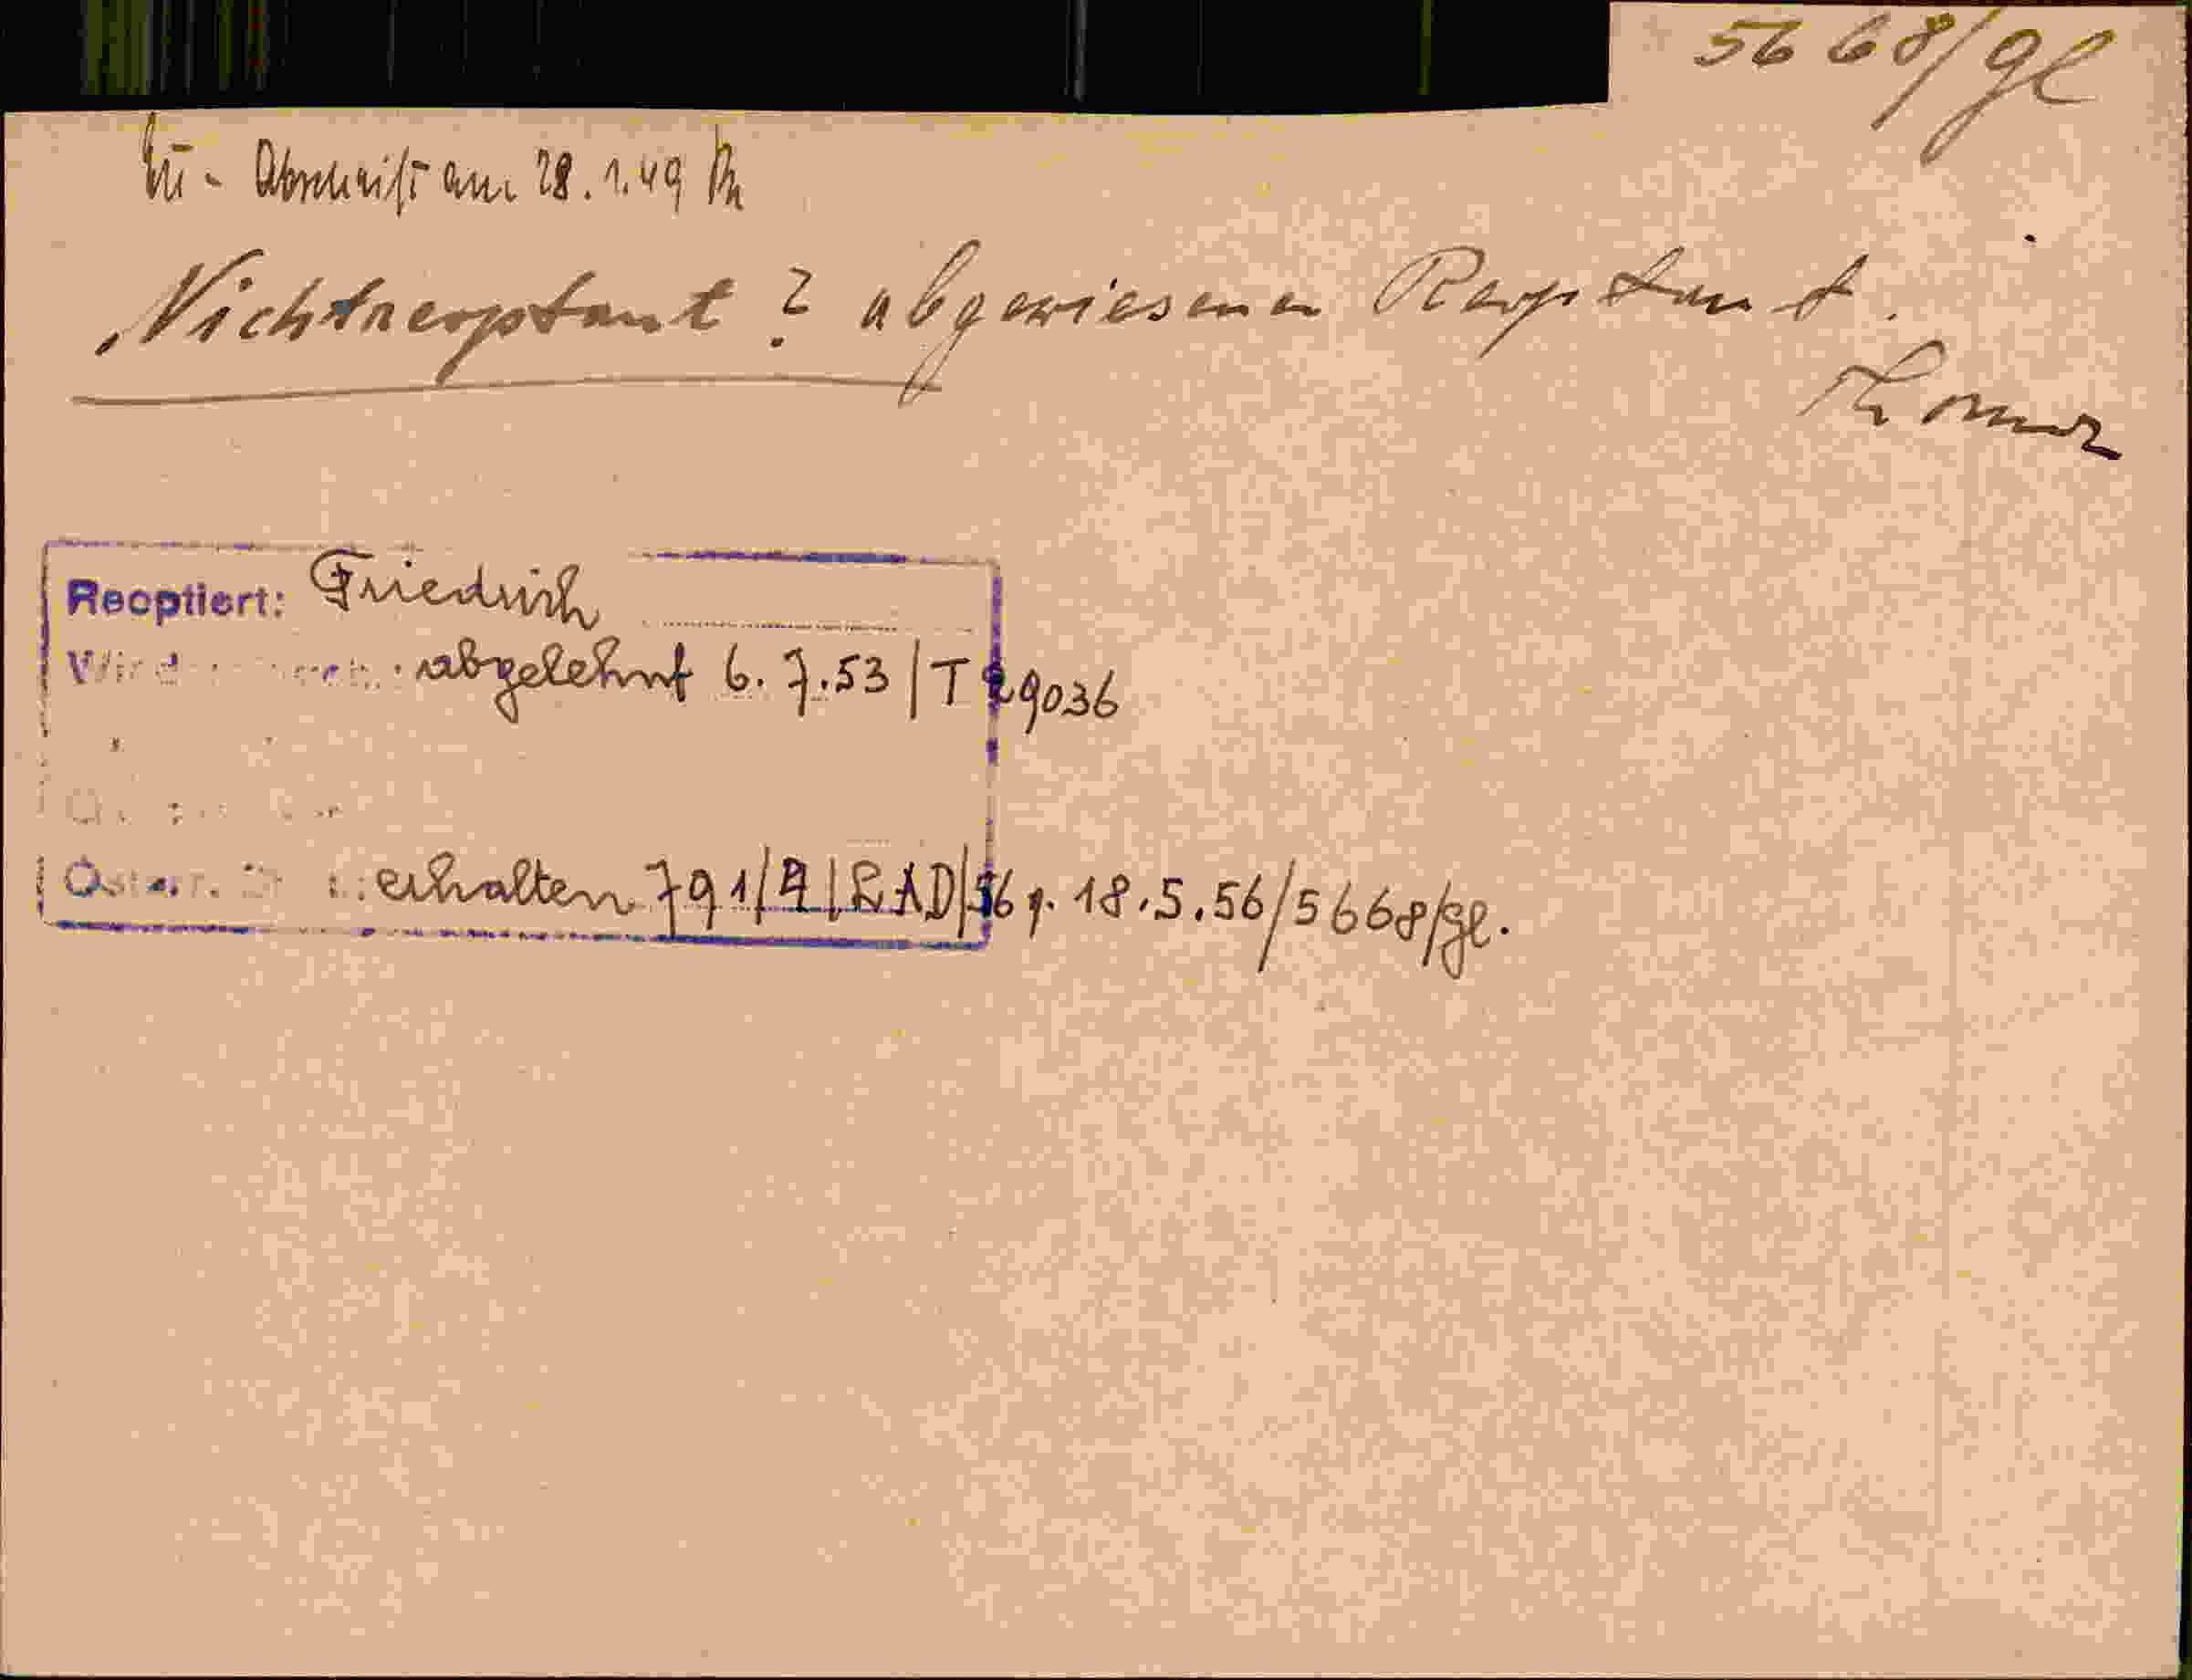 5668/gl
Abschrift am 28.1.49
Nichtreoptant? abgewiesener Reoptant.
Reoptiert: Friedrich
abgelehnt 6.7.53/T 29036
Österr. erhalten 791/A/RAD/56 v. 18.5.56/5668/gl.